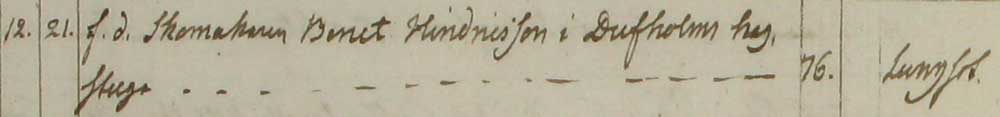 12. 21. f. d. Skomakaren Benct Hindricsson i Dufholms hag,
stuga - - - - - - - - - - - 76. Lungsot.